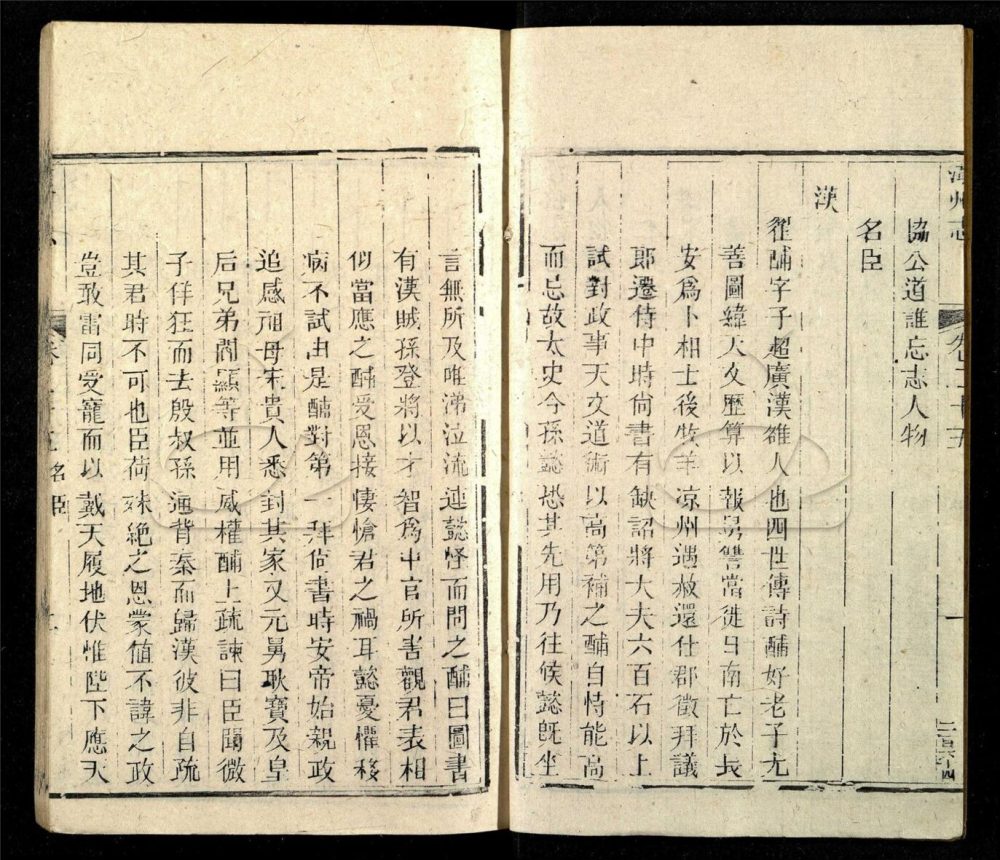 漳州志
卷二十五
一
協公道誰忘志人物
名臣
漢
翟酺字子超廣漢雒人也四世傳詩酺好老子尤
善圖緯天文歷算以報舅讐當徙日南亡於長
安爲卜相士後牧羊凉州遇赦還仕郡徵拜議
郎遷侍中時尚書有缺詔將大夫六百石以上
試對政事天文道術以高第補之酺自恃能高
而忌故太史令孫懿恐其先用乃往候懿旣坐
言無所及唯涕泣流連懿怪而問之酺曰圖書
有漢賊孫登將以才智爲中官所害觀君表相
似當應之酺受恩接悽愴君之禍耳懿憂懼移
病不試由是酺對第一拜尚書時安帝始親政
追感祖母宋貴人悉封其家又元舅耿寶及皇
后兄弟閻顯等並用威權酺上疏諫曰臣聞微
子佯狂而去殷叔孫通背秦而歸漢彼非自疏
其君時不可也臣荷殊絶之恩蒙值不諱之政
豈敢雷同受寵而以戴天履地伏惟陛下應天
名臣